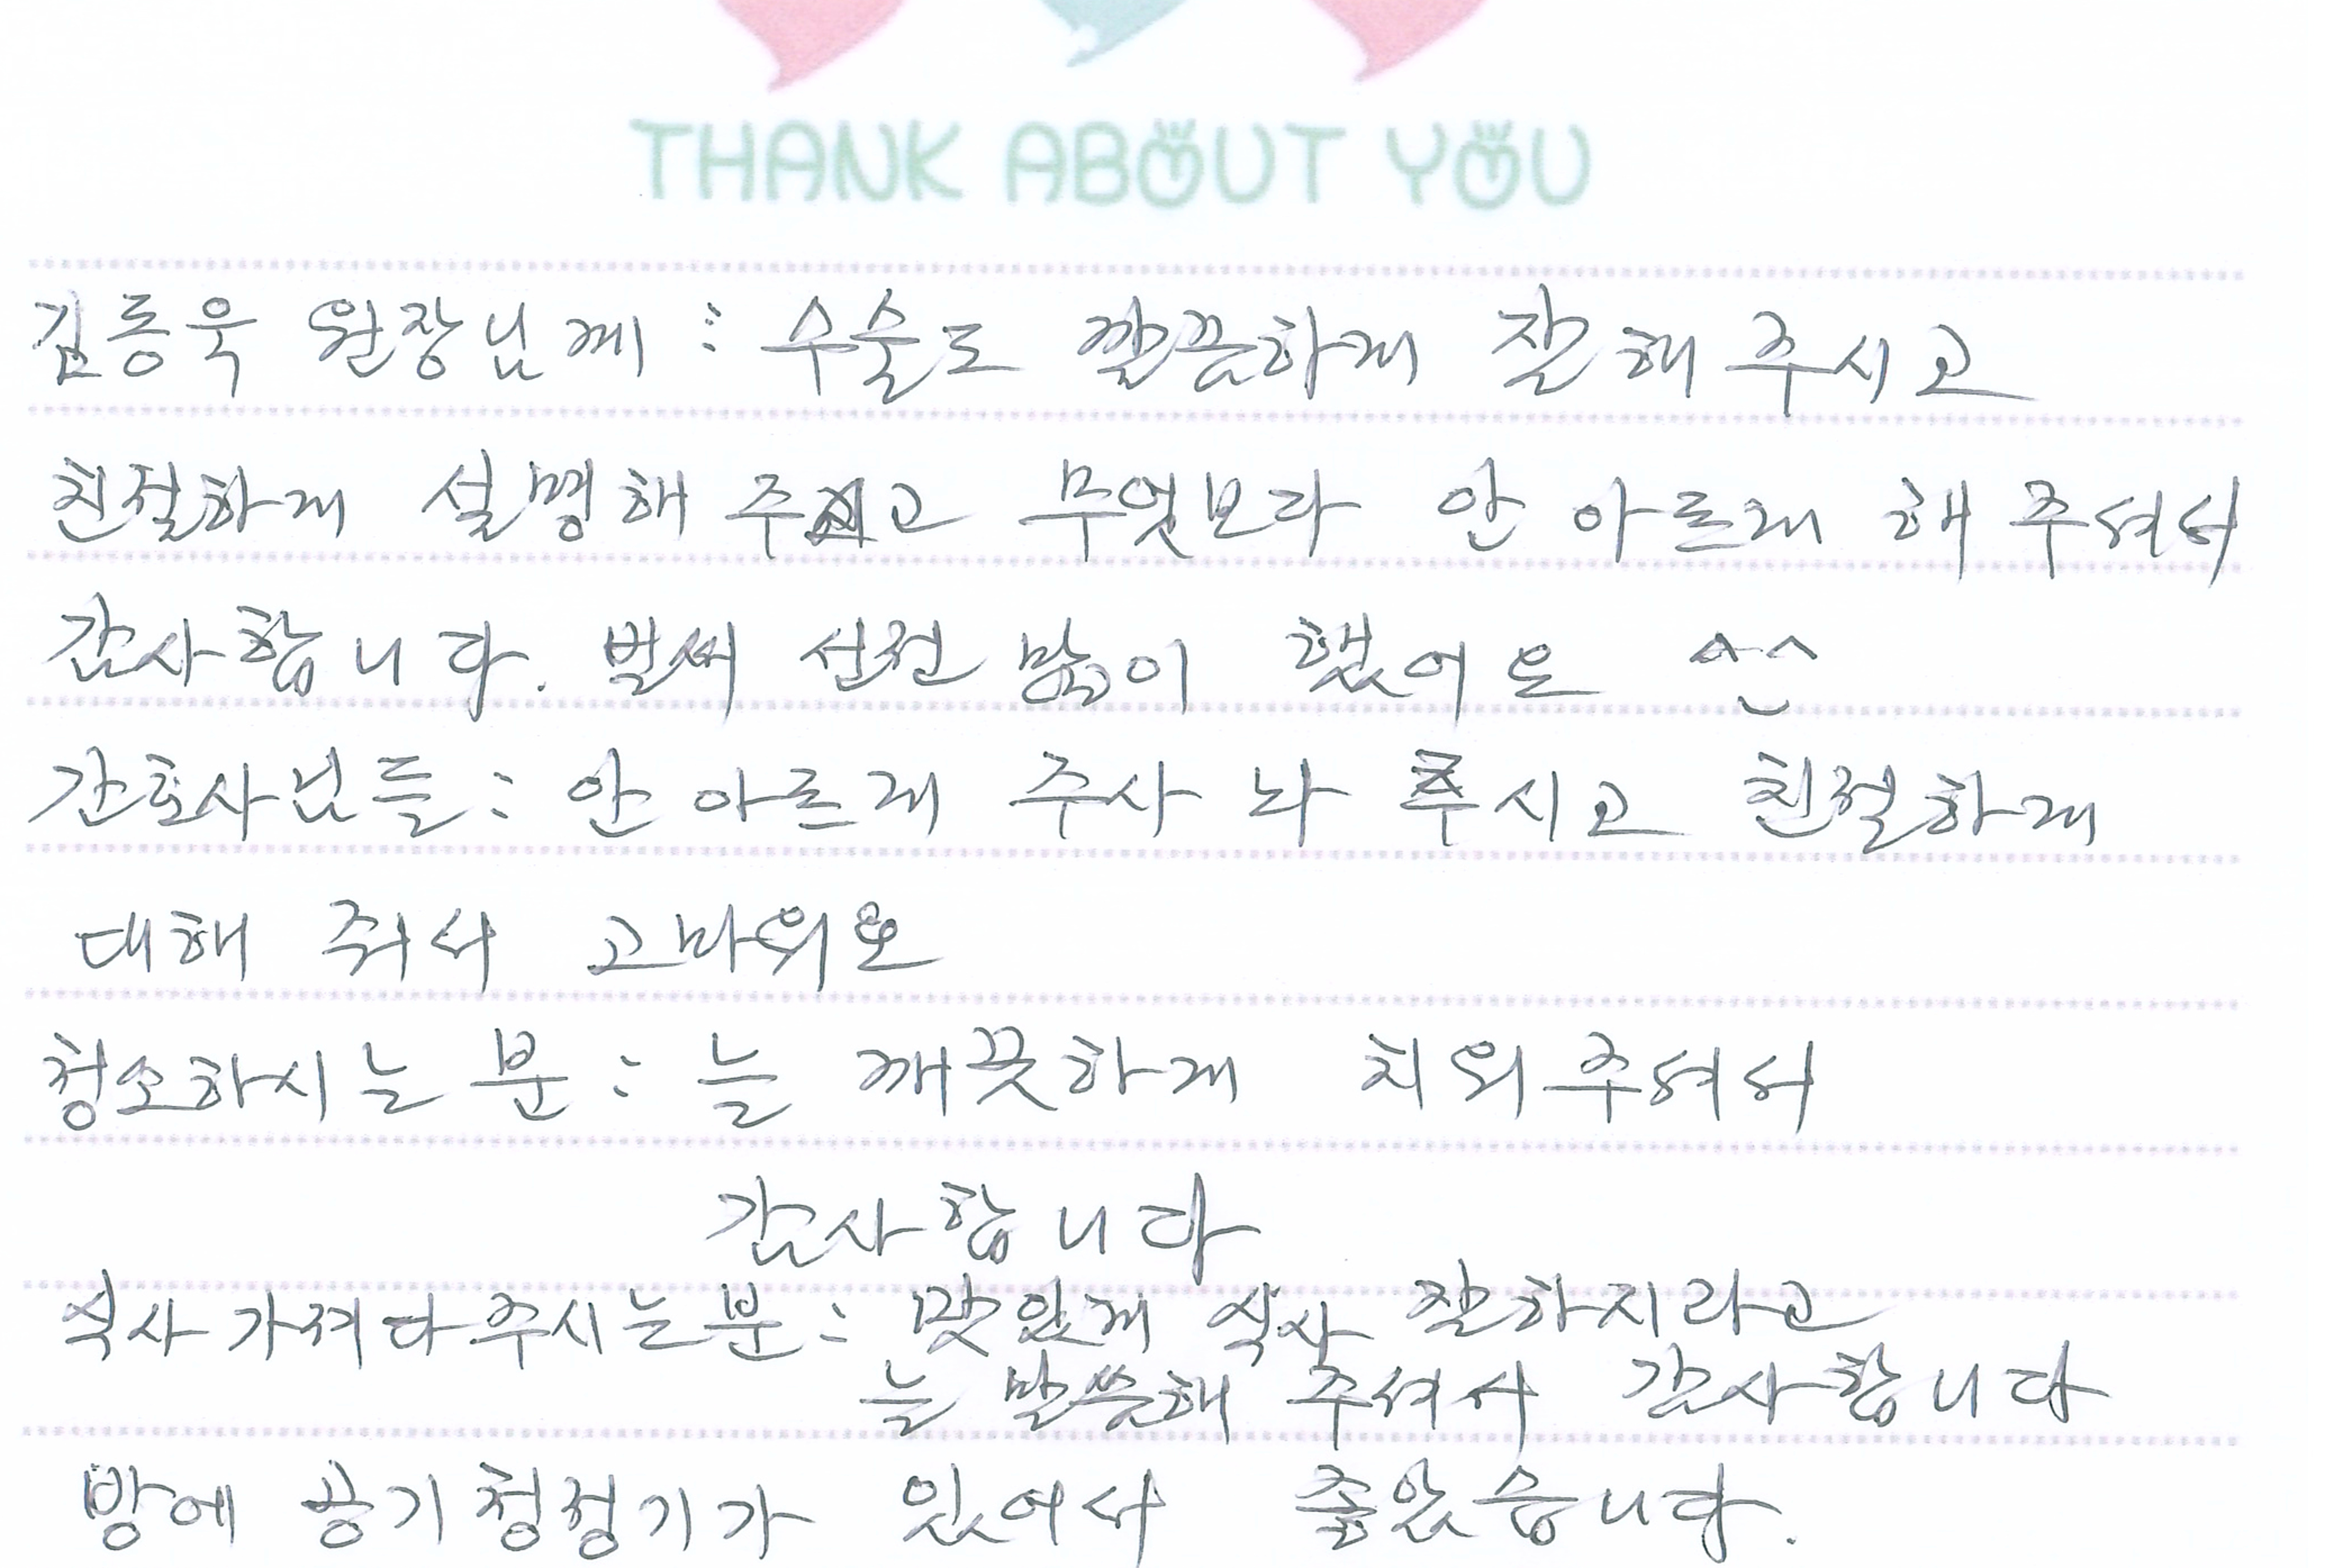 THANK ABOUT YOU
김동욱 원장님께 : 수술도 깔끔하게 잘해주시고
친절하게 설명해 주시고 무엇보다 안 아프게 해주셔서
감사합니다. 벌써 선전 많이 했어요 ^^
간호사님들 : 안 아프게 주사 놔 주시고 친절하게
대해 줘서 고마워요
청소하시는 분 : 늘 깨끗하게 치워주셔서
감사합니다
식사 가져다 주시는 분 : 맛있게 식사 잘하시라고
늘 말씀해 주셔서 감사합니다
방에 공기청정기가 있어서 좋았습니다.